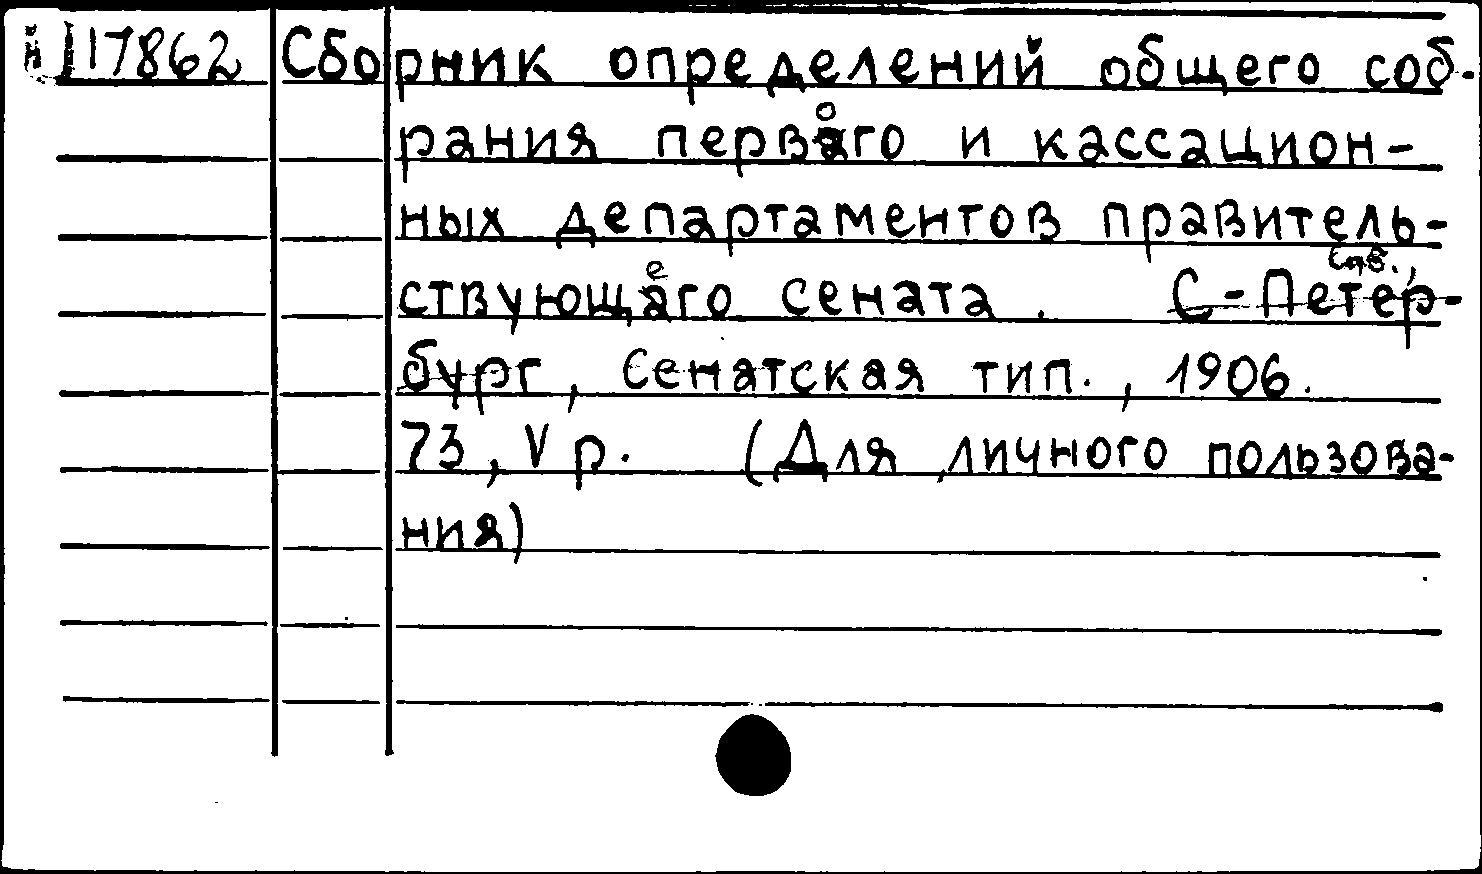 17862 Сборник определений общего соб-
рания первого и кассацион-
ных департаментов правитель-
ствующего сената. Спб.,
Сенатская тип., 1906.
73, V р. (Для личного пользова-
ния)